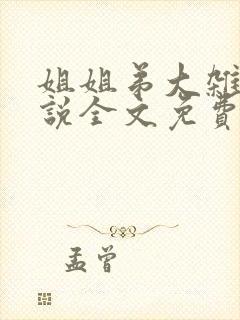 姐姐弟大雜
說全文免費
孟曾